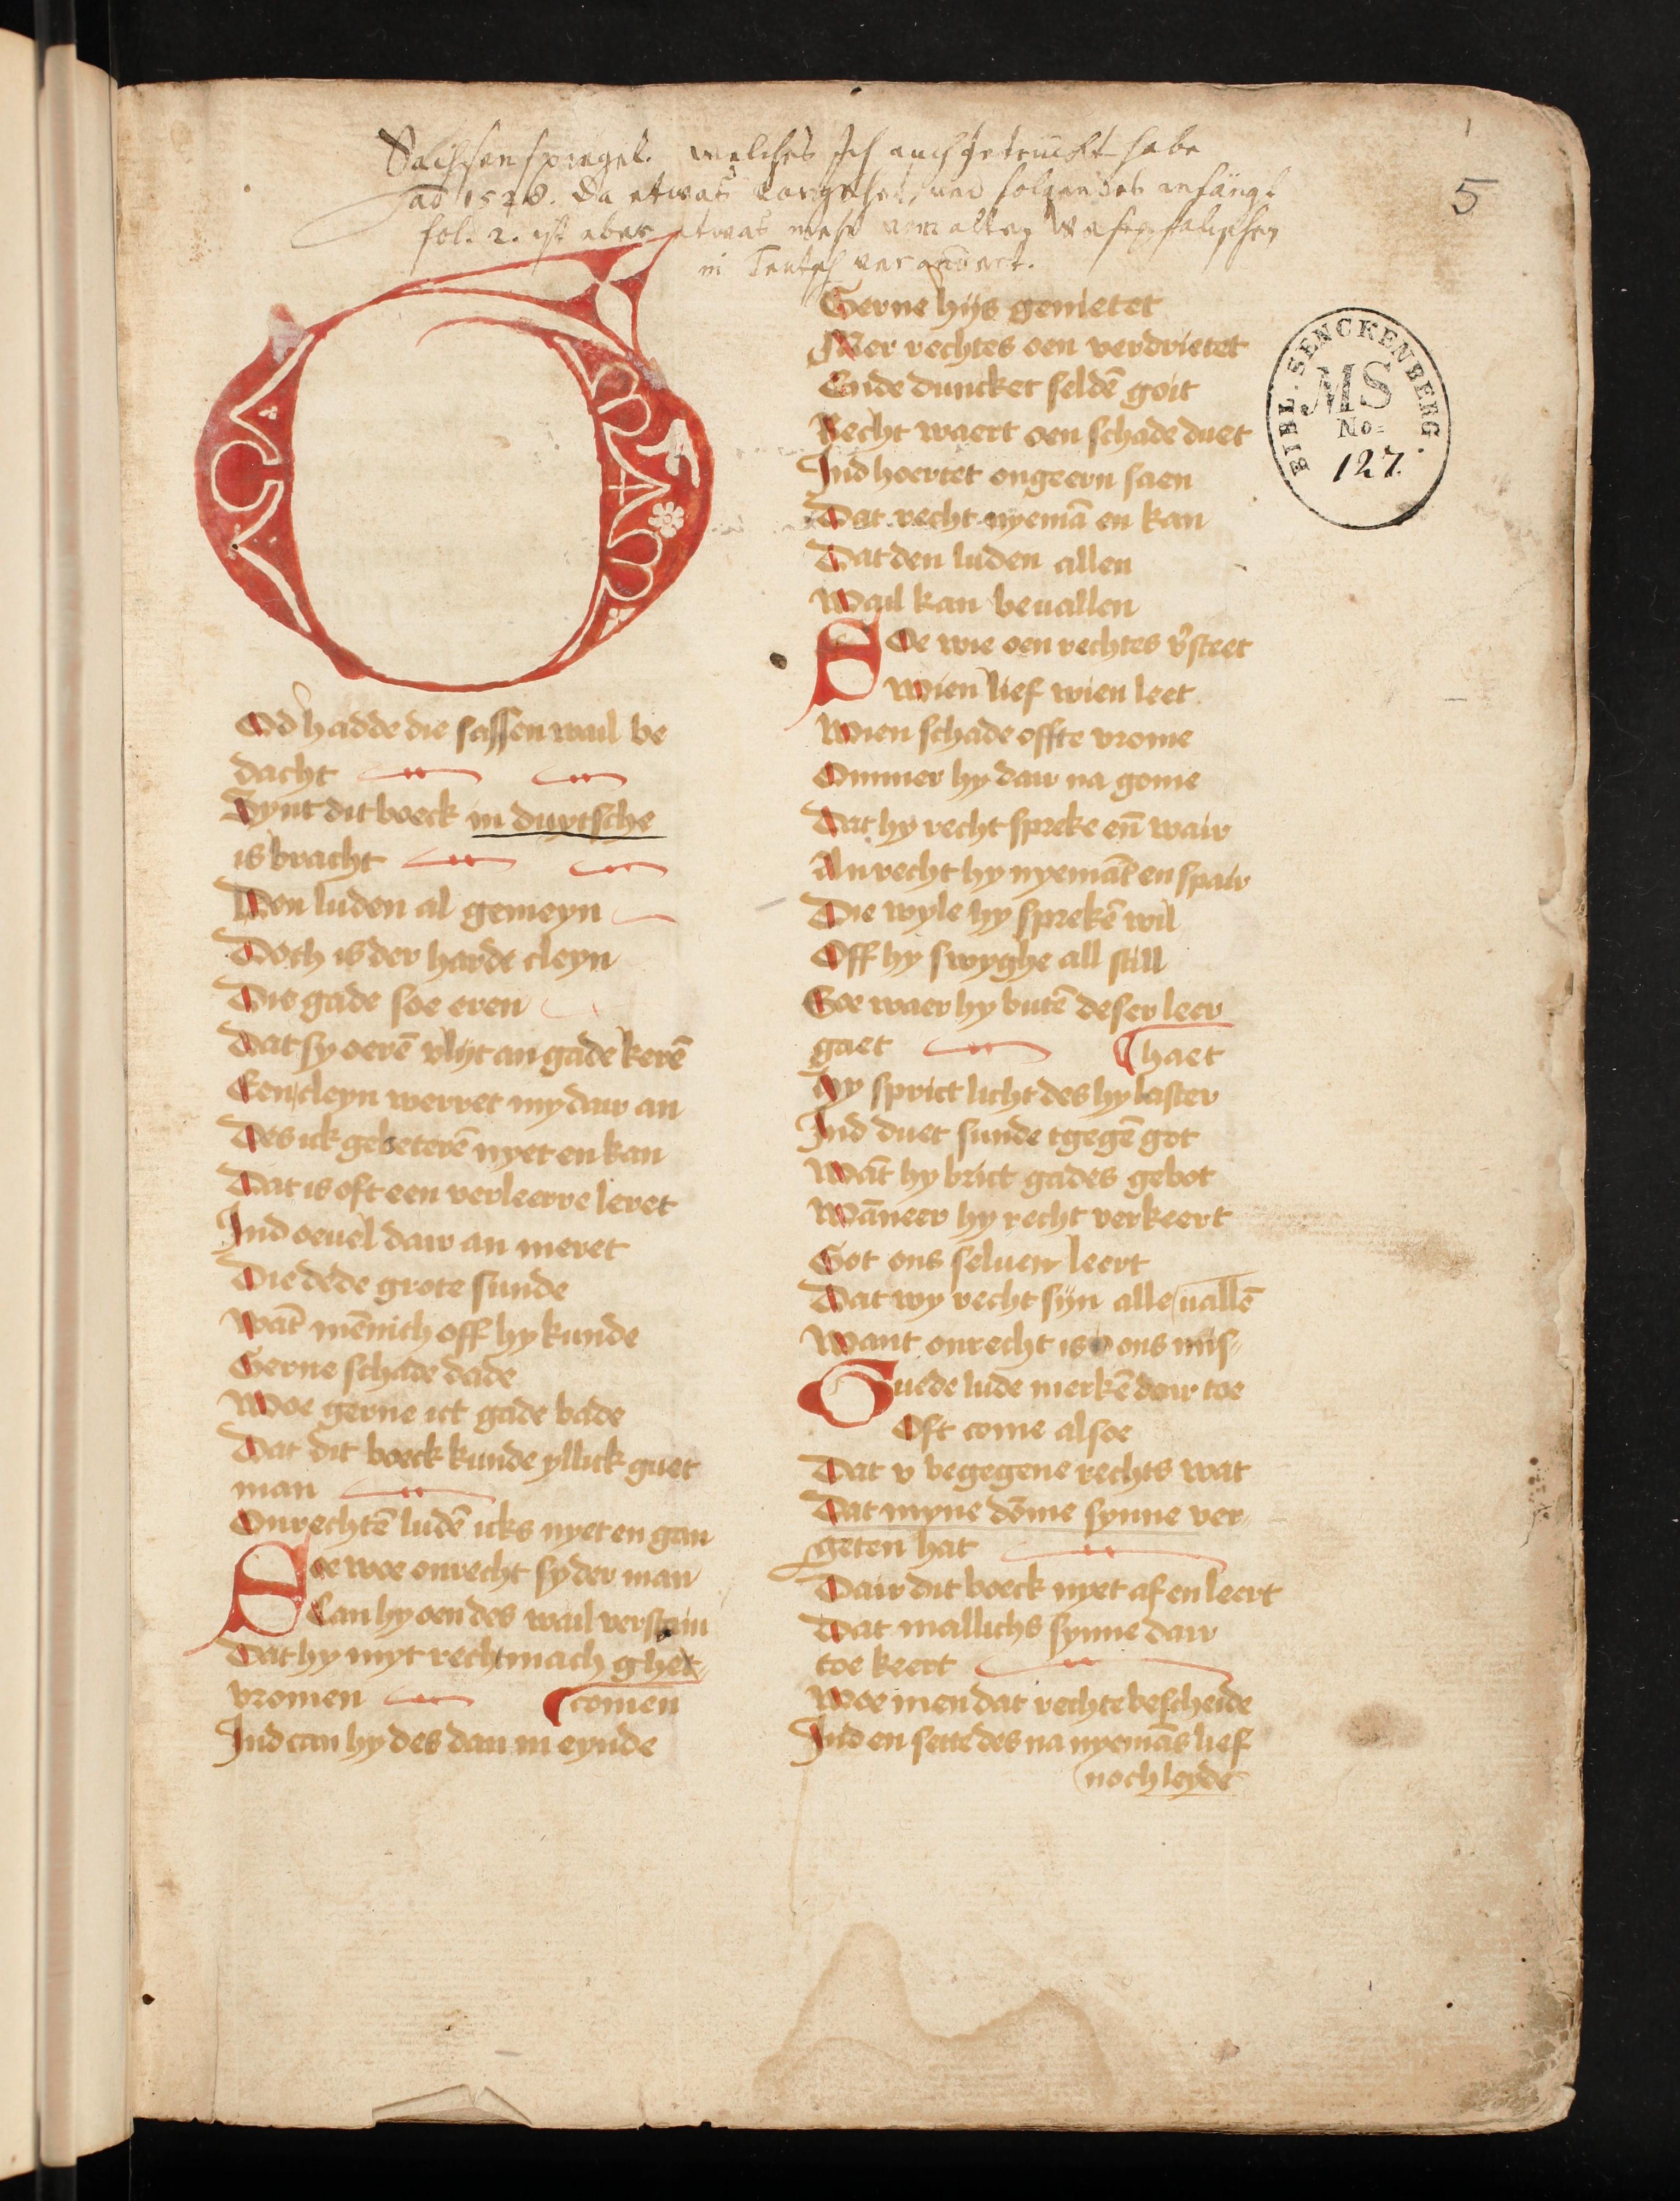 Sachssenspiegel. welches Ich auch getruckt habe
ad 1528. Da etwas vorgehet, und folgendes anfängt
fol. 2. ist aber etwas mehr vom alten Westphalischen
in Teutsch verandert.
5
BIBL. SENCKENBERG.
MS
No.
127.
God hadde die sassen wail be
dacht
Synt dit boeck in duytsche
is bracht
Den luden al gemeyn
Doch is der harde cleyn
Dis gade soe eren
Dat sy oerē vlijt an gade kerē
Een cleyn werret my dair an
Des ick gebeterē nyet en kan
Dat is oft een verleerre leret
Ind oeuel dair an meret
Die dede grote sunde
Wāt mēnich off hy kunde
Gerne schade dade
Woe gerne ict gade bade
Dat dit boeck kunde yllick guet
man
Onrechtē ludē icks nyet en gan
Soe woe onrecht sy der man
Can hy oen des wail verstain
Dat hy myt recht mach ghet
vromen comen
Ind can hy des dan in eynde
Gerne hijs genietet
Mer rechtes oen verdrietet
Ende duncket seldē goit
Recht waert oen schade duet
Ind hoertet ongeern saen
Dat recht nyemā en kan
Dat den luden allen
Wail kan beuallen
Soe wie oen rechtes v̄steet
Wien lief wien leet
Wien schade offte vrome
Ommer hy dair na gome
Dat hy recht spreke en̄ wair
An recht hy nyemāt en spair
Die wyle hy sprekē wil
Off hy swyghe all still
Soe waer hy butē deser leer
gaet haet
Hy sprict licht des hy laster
Ind duet sunde tgegē got
Wāt hy brict gades gebot
Wāneer hy recht verkeert
Got ons seluen leert
Dat wy recht sijn alle uallē
Want onrecht is ons mis-
Guede lude merkē dair toe
Oft come alsoe
Dat v begegene rechts wat
Dat myne dōme synne ver-
geten hat
Dair dit boeck nyet af en leert
Dat mallichs synne dair
toe keert
Woe men dat rechte bescheide
Ind en sette des na nyemās lief
noch leyde